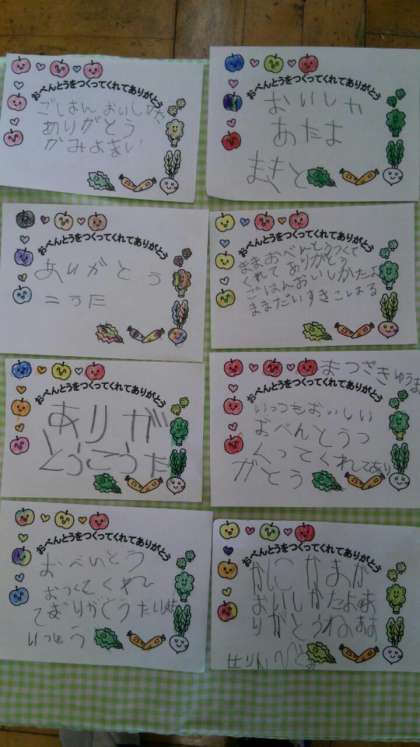 おべんとうをつくってくれてありがとう
ごはん おいし
ありがとう
かみよまい
おべんとうをつくってくれてありがとう
おいしか
あたよ
まさと
おべんとうをつくってくれてありがとう
ありがとう
こうた
おべんとうをつくってくれてありがとう
ままおべんとうつくて
くれて ありがとう
ごはんおいしかたよ
ままだいすきこはる
おべんとうをつくってくれてありがとう
ありが
とうこうた
おべんとうをつくってくれてありがとう
まつざき
いっつもおいしい
おべんとうつ
くってくれてあり
がとう
おべんとうをつくってくれてありがとう
おべいとう
おつくてくれ
てありがとう
おべんとうをつくってくれてありがとう
おいしかたよ
りがとうね